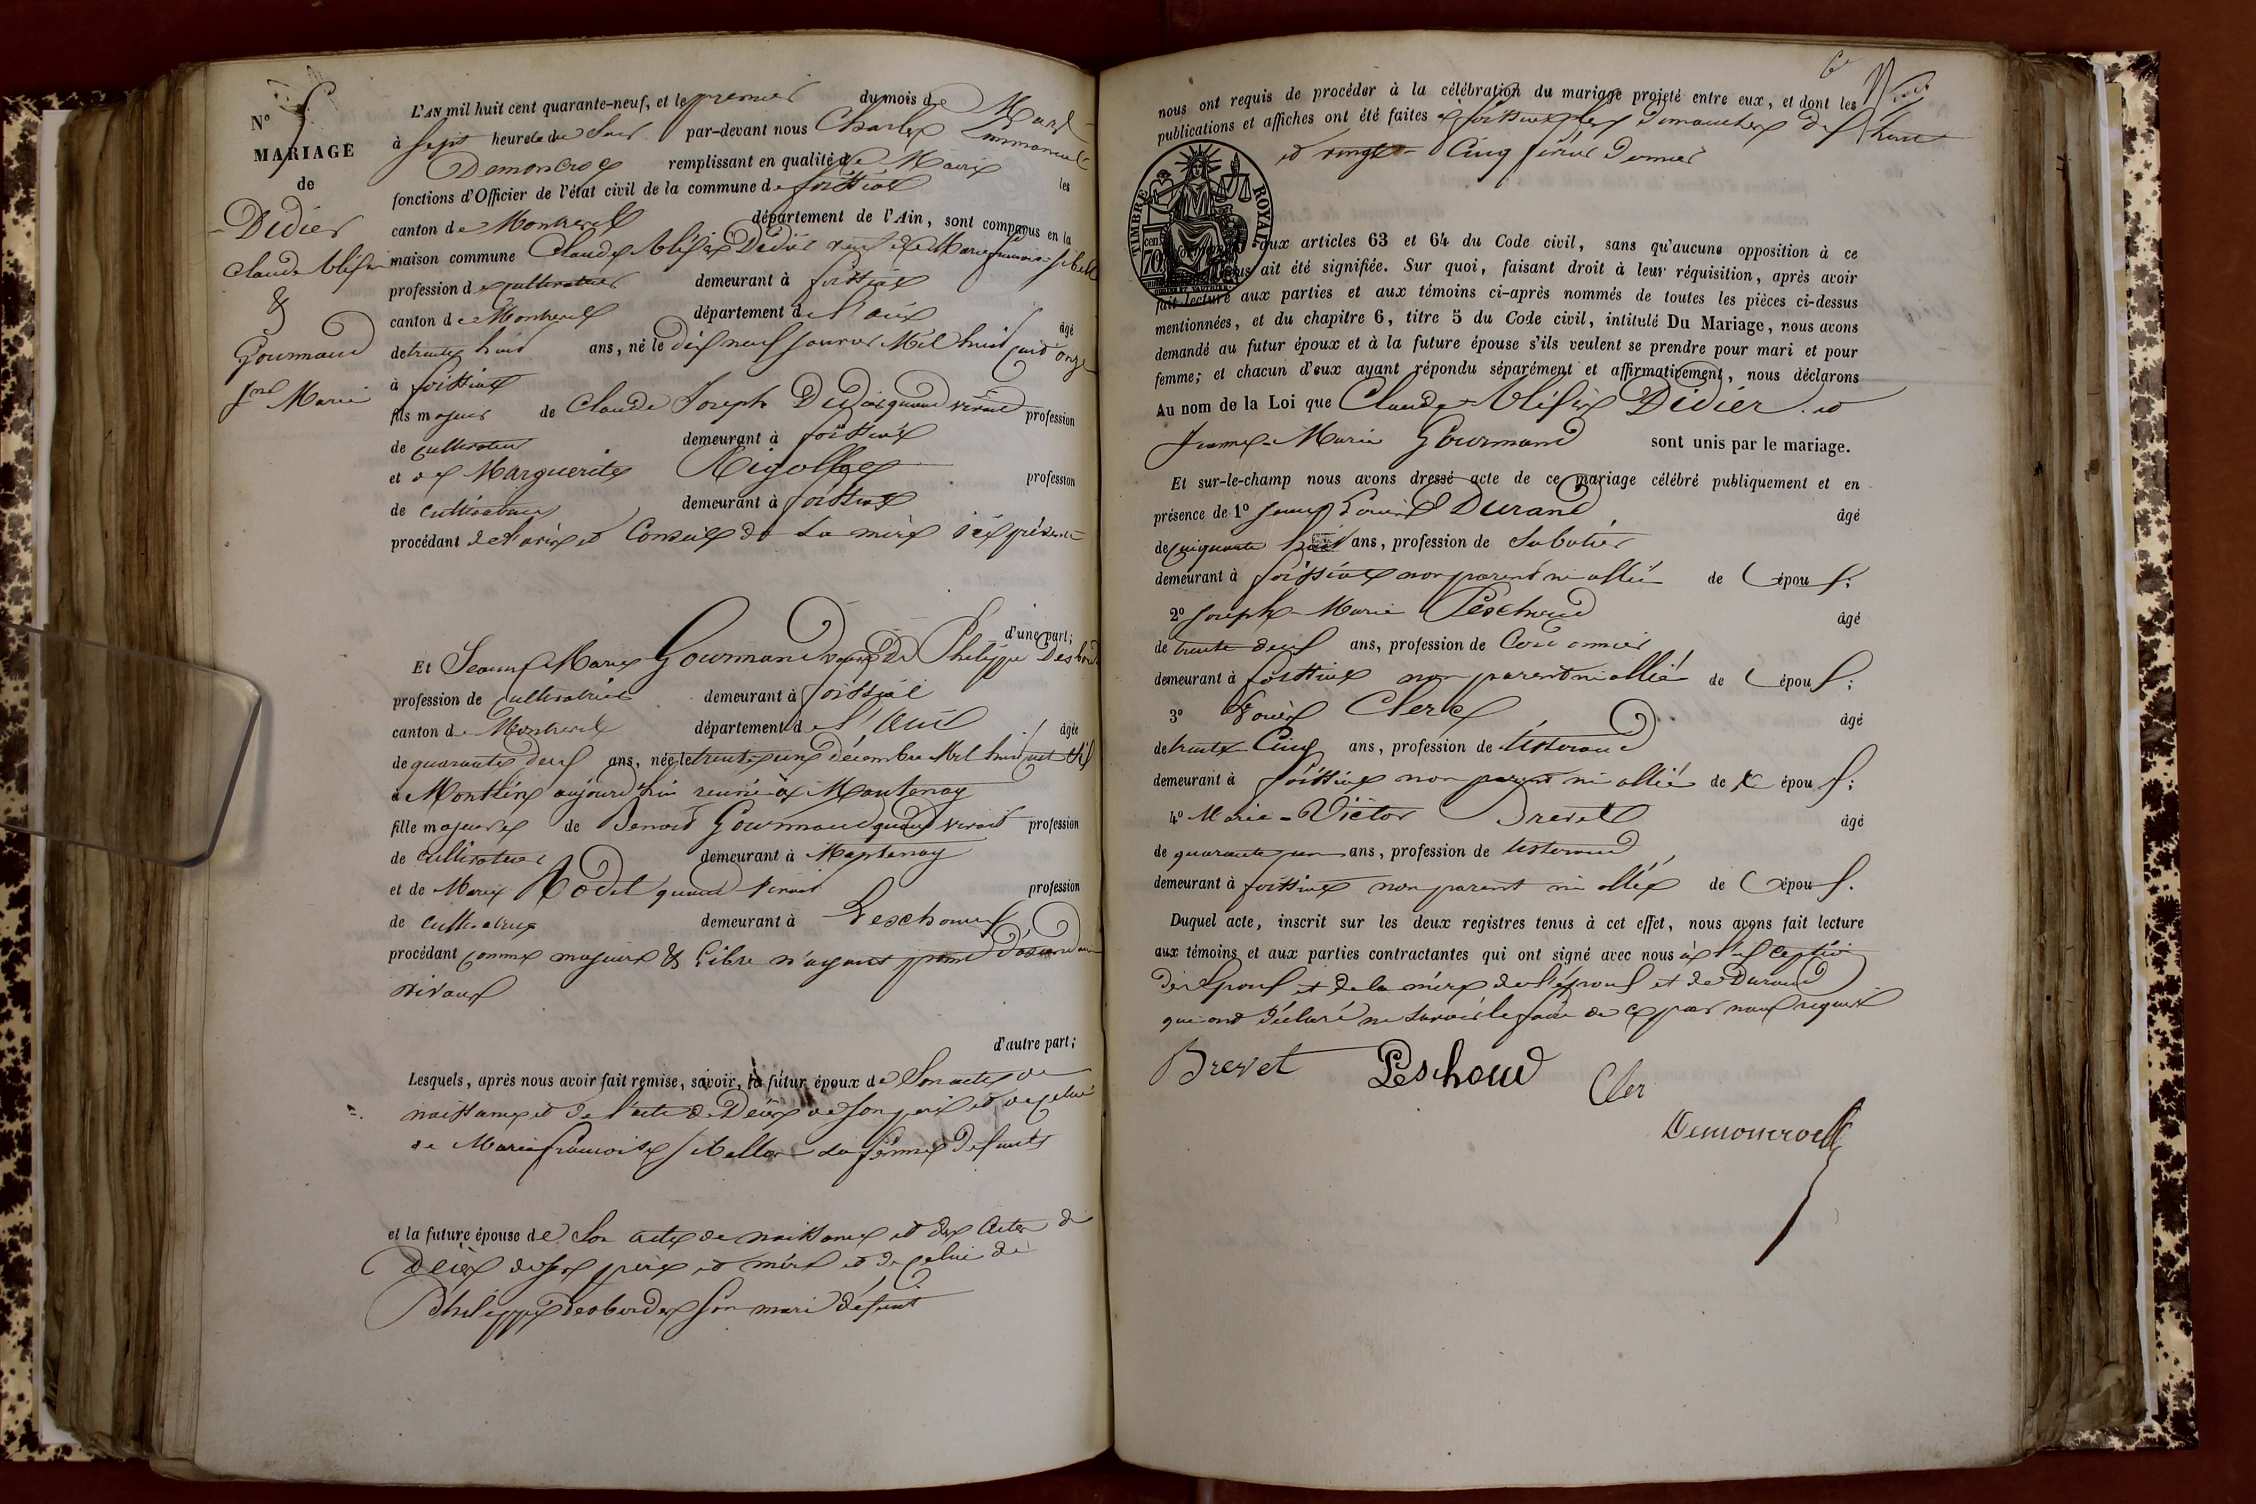 N° 5
MARIAGE
de
Didier
Claude
&
Gourmand
Jne Marie
L'AN mil huit cent quarante-neuf, et le premier du mois de Mars
à sept heures du soir par-devant nous Charles Emmanuel
Demoncroex remplissant en qualité de Maire les
fonctions d'Officier de l'état civil de la commune de foissiat
canton de Montrevel département de l'Ain, sont comparus en la
maison commune Claude Didier veuf de Marie françoise
profession de cultivateur demeurant à foissiat
canton de Montrevel département de l'ain âgé
de trente huit ans, né le dix neuf janvier Mil huit cent onze
à foissiat
fils majeur de Claude Joseph Didier quand vivait profession
de cultivateur demeurant à foissiat
et de Marguerite Rigollet profession
de cultivatrice demeurant à foissiat
procédant de l'avis et Conseil de sa mère ici présente
d'une part;
Et Jeanne Marie Gourmand veuve de Philippe Desbordes
profession de cultivatrice demeurant à foissiat
canton de Montrevel département de l'Ain âgée
de quarante deux ans, née le trente un décembre Mil huit cent six
à Montlin aujourd'hui réuni à Mantenay
fille majeure de Benoit Gourmand quand vivait profession
de cultivateur demeurant à Mantenay
et de Marie Rodet quand vivait profession
de cultivatrice demeurant à Lescheroux
procédant comme majeure & libre n'ayant point d'ascendans
vivans
d'autre part;
Lesquels, après nous avoir fait remise, savoir, le futur époux de Son acte de
naissance et de l'acte de Décès de son père et de celui
de Marie françoise sa femme defunts
et la future épouse de Son acte de naissance et des actes de
Décès de ses père et mère et de celui de
Philippe Desbordes son mari défunt
6
nous ont requis de procéder à la célébration du mariage projeté entre eux, et dont les
publications et affiches ont été faites à foissiat les dimanches dix huit
et vingt Cinq février dernier
TIMBRE ROYAL
70 cen
conformément aux articles 63 et 64 du Code civil, sans qu'aucune opposition à ce
mariage nous ait été signifiée. Sur quoi, faisant droit à leur réquisition, après avoir
fait lecture aux parties et aux témoins ci-après nommés de toutes les pièces ci-dessus
mentionnées, et du chapitre 6, titre 5 du Code civil, intitulé Du Mariage, nous avons
demandé au futur époux et à la future épouse s'ils veulent se prendre pour mari et pour
femme; et chacun d'eux ayant répondu séparément et affirmativement, nous déclarons
Au nom de la Loi que Claude Didier et
Jeanne-Marie Gourmand sont unis par le mariage.
Et sur-le-champ nous avons dressé acte de ce mariage célébré publiquement et en
présence de 1° Durand âgé
de cinquante huit ans, profession de Sabotier
demeurant à foissiat non parent ni allié de l'époux;
2° Joseph-Marie Peschoud âgé
de trente deux ans, profession de Cordonnier
demeurant à foissiat non parent ni allié de l'époux;
3° Louis Clerc âgé
de trente-Cinq ans, profession de tisserand
demeurant à foissiat non parent ni allié de l'époux;
4° Marie-Victor Brevet âgé
de quarante un ans, profession de tisserand
demeurant à foissiat non parent ni allié de l'époux.
Duquel acte, inscrit sur les deux registres tenus à cet effet, nous avons fait lecture
aux témoins et aux parties contractantes qui ont signé avec nous à l'exception
des Epoux et de la mère de l'époux et de Durand
qui ont déclaré ne savoir le faire de ce par nous requis
Brevet Peschoud Cler
Demoncroex